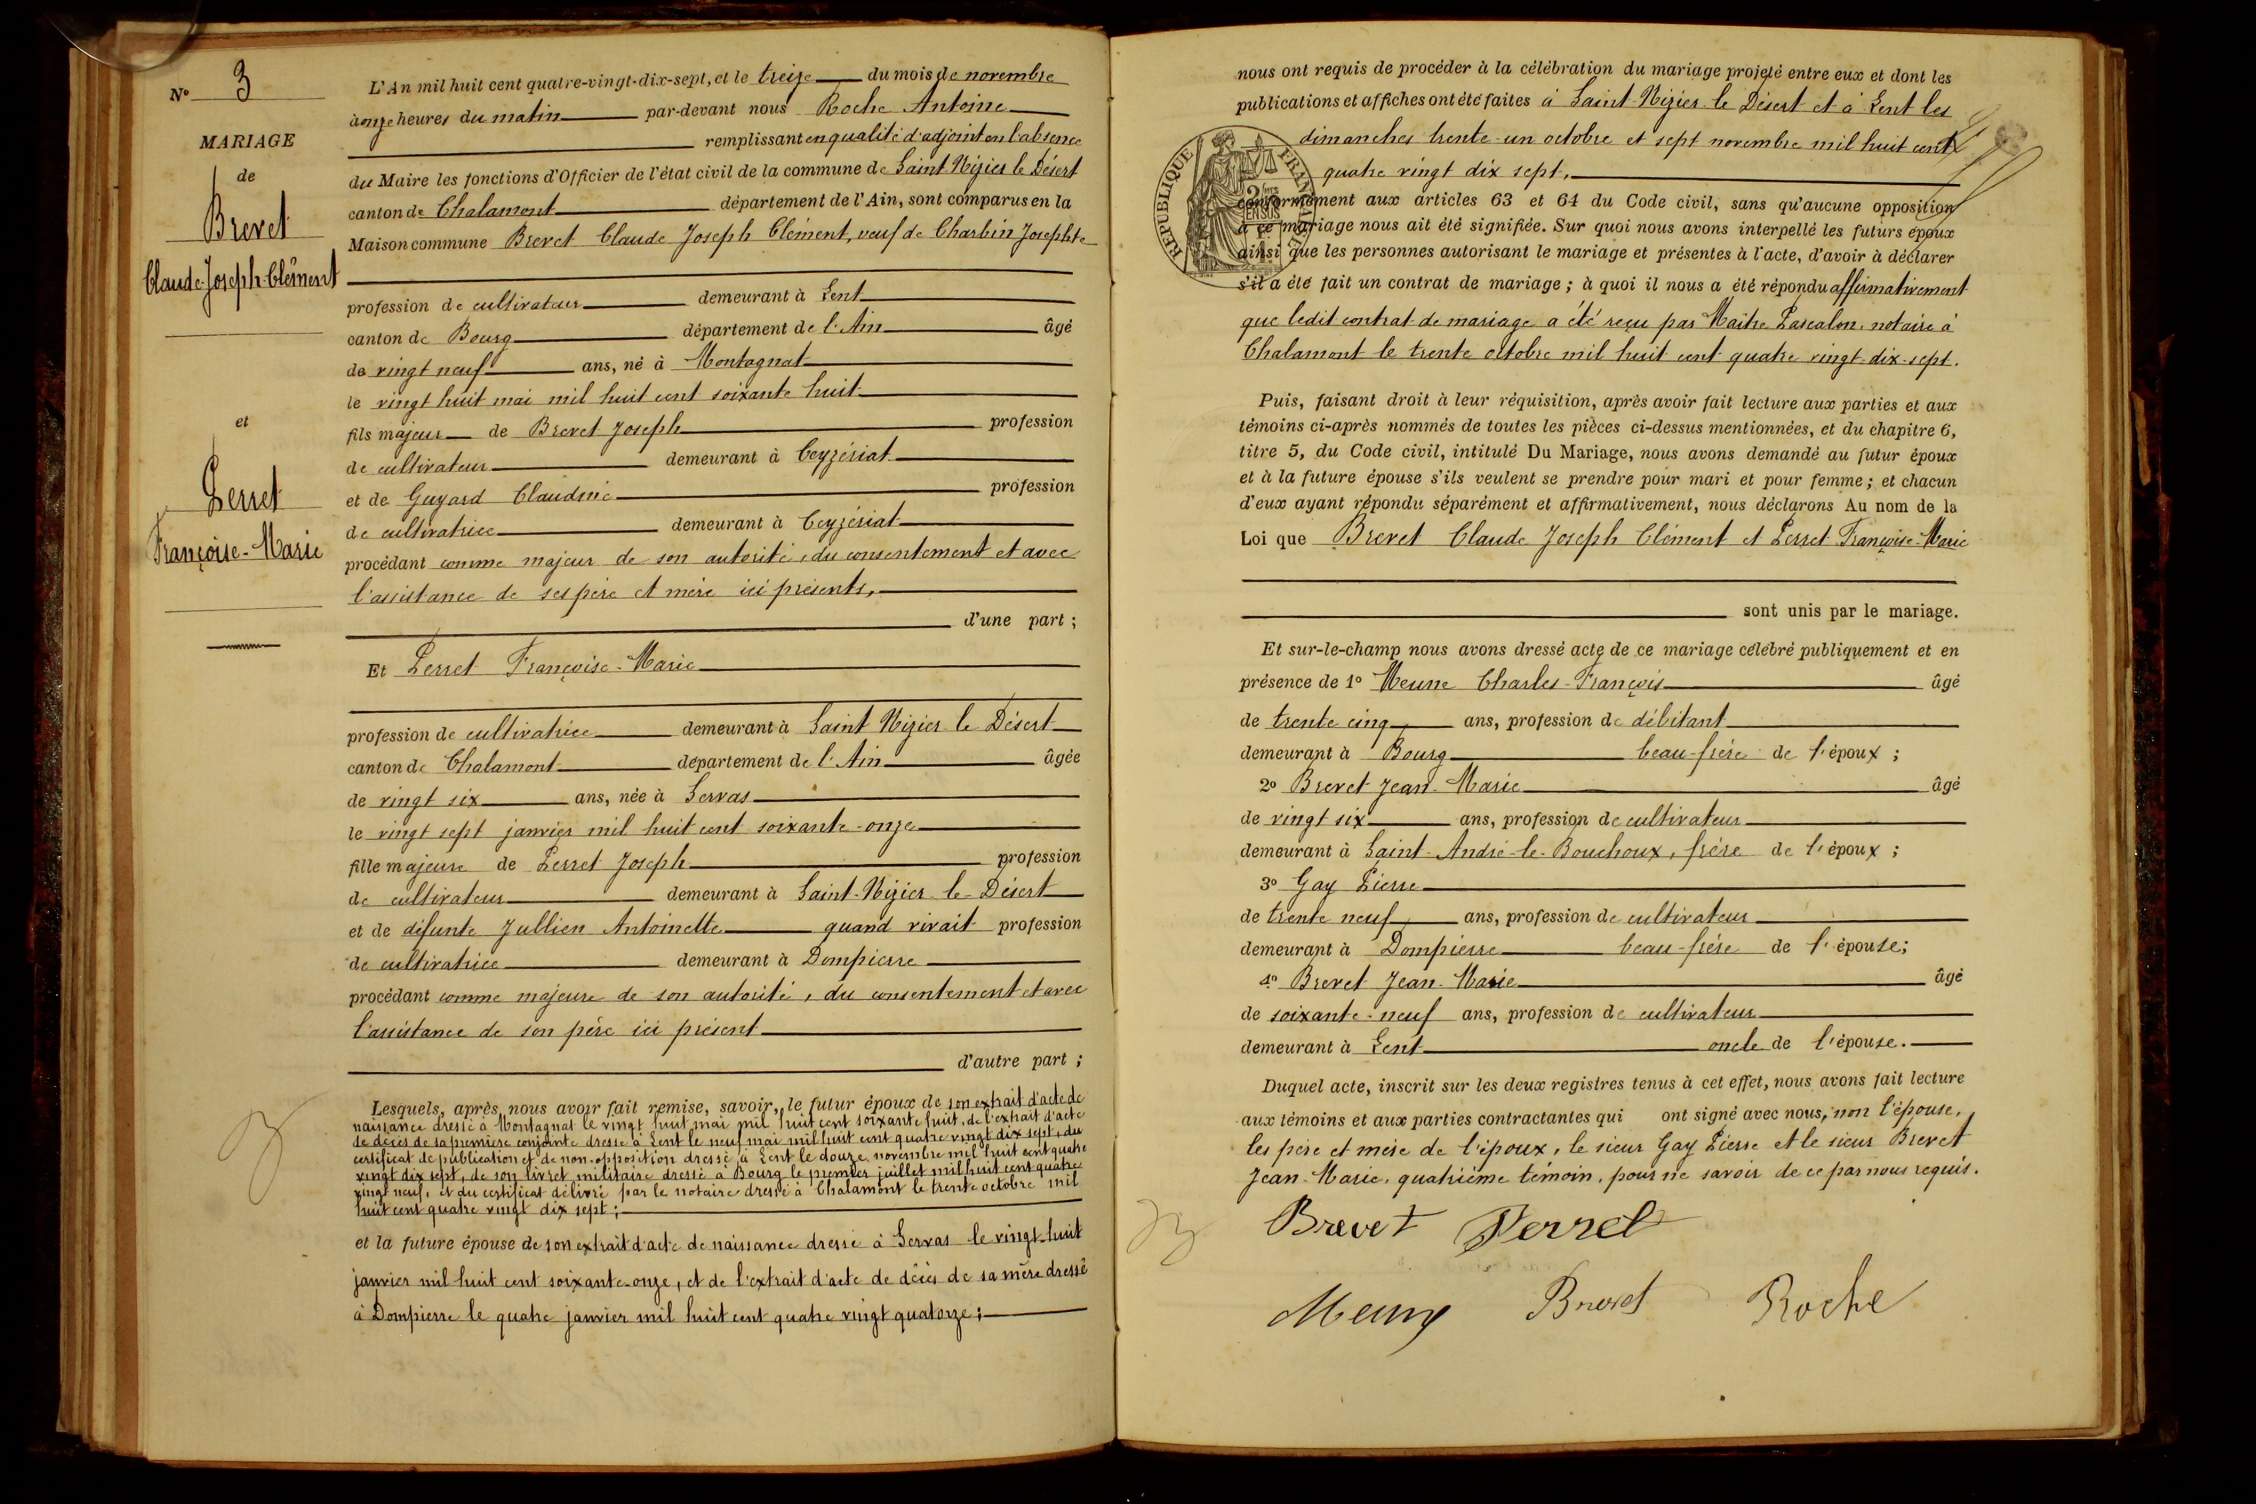 N° 3
MARIAGE
de
Brevet
Claude-Joseph-Clément
et
Perret
Françoise-Marie
L'An mil huit cent quatre-vingt-dix-sept, et le treize du mois de novembre
à onze heures du matin par-devant nous Roche Antoine
remplissant en qualité d'adjoint en l'absence
du Maire les fonctions d'Officier de l'état civil de la commune de Saint Nizier le Désert
canton de Chalamont département de l'Ain, sont comparus en la
Maison commune Brevet Claude Joseph Clément, veuf de Charbin Josephte
profession de cultivateur demeurant à Lent
canton de Bourg département de l'Ain âgé
de vingt neuf ans, né à Montagnat
le vingt huit mai mil huit cent soixante huit
fils majeur de Brevet Joseph profession
de cultivateur demeurant à Ceyzériat
et de Guyard Claudine profession
de cultivatrice demeurant à Ceyzériat
procédant comme majeur de son autorité, du consentement et avec
l'assistance de ses père et mère ici présents,
d'une part ;
Et Perret Françoise-Marie
profession de cultivatrice demeurant à Saint Nizier le Désert
canton de Chalamont département de l'Ain âgée
de vingt six ans, née à Servas
le vingt sept janvier mil huit cent soixante-onze
fille majeure de Perret Joseph profession
de cultivateur demeurant à Saint-Nizier-le-Désert
et de défunte Jullien Antoinette quand vivait profession
de cultivatrice demeurant à Dompierre
procédant comme majeure de son autorité, du consentement et avec
l'assistance de son père ici présent
d'autre part ;
Lesquels, après nous avoir fait remise, savoir, le futur époux de son extrait d'acte de
naissance dressé à Montagnat le vingt huit mai mil huit cent soixante huit, de l'extrait d'acte
de décès de sa première conjointe dressé à Lent le neuf mai mil huit cent quatre vingt dix sept, du
certificat de publication et de non-opposition dressé à Lent le douze novembre mil huit cent quatre
vingt dix sept, de son livret militaire dressé à Bourg le premier juillet mil huit cent quatre
vingt neuf, et du certificat délivré par le notaire dressé à Chalamont le trente octobre mil
huit cent quatre vingt dix sept ;
et la future épouse de son extrait d'acte de naissance dressé à Servas le vingt-huit
janvier mil huit cent soixante-onze, et de l'extrait d'acte de décès de sa mère dressé
à Dompierre le quatre janvier mil huit cent quatre vingt quatorze ;
nous ont requis de procéder à la célébration du mariage projeté entre eux et dont les
publications et affiches ont été faites à Saint-Nizier-le Désert et à Lent les
dimanches trente-un octobre et sept novembre mil huit cent
quatre vingt dix sept,
RÉPUBLIQUE FRANÇAISE
conformément aux articles 63 et 64 du Code civil, sans qu'aucune opposition
à ce mariage nous ait été signifiée. Sur quoi nous avons interpellé les futurs époux
ainsi que les personnes autorisant le mariage et présentes à l'acte, d'avoir à déclarer
s'il a été fait un contrat de mariage ; à quoi il nous a été répondu affirmativement
que ledit contrat de mariage a été reçu par Maître Pascalon, notaire à
Chalamont le trente octobre mil huit cent quatre vingt-dix-sept.
Puis, faisant droit à leur réquisition, après avoir fait lecture aux parties et aux
témoins ci-après nommés de toutes les pièces ci-dessus mentionnées, et du chapitre 6,
titre 5, du Code civil, intitulé Du Mariage, nous avons demandé au futur époux
et à la future épouse s'ils veulent se prendre pour mari et pour femme ; et chacun
d'eux ayant répondu séparément et affirmativement, nous déclarons Au nom de la
Loi que Brevet Claude Joseph Clément et Perret Françoise-Marie
sont unis par le mariage.
Et sur-le-champ nous avons dressé acte de ce mariage célébré publiquement et en
présence de 1° Meune Charles-François âgé
de trente cinq ans, profession de débitant
demeurant à Bourg beau-frère de l'époux ;
2° Brevet Jean-Marie âgé
de vingt six ans, profession de cultivateur
demeurant à Saint-André-le-Bouchoux, frère de l'époux ;
3° Gay Pierre
de trente neuf ans, profession de cultivateur
demeurant à Dompierre beau-frère de l'épouse ;
4° Brevet Jean-Marie âgé
de soixante-neuf ans, profession de cultivateur
demeurant à Lent oncle de l'épouse.
Duquel acte, inscrit sur les deux registres tenus à cet effet, nous avons fait lecture
aux témoins et aux parties contractantes qui ont signé avec nous, non l'épouse,
les père et mère de l'époux, le sieur Gay Pierre et le sieur Brevet
Jean-Marie, quatrième témoin, pour ne savoir de ce par nous requis.
Brevet Perret
Meune Brevet Roche